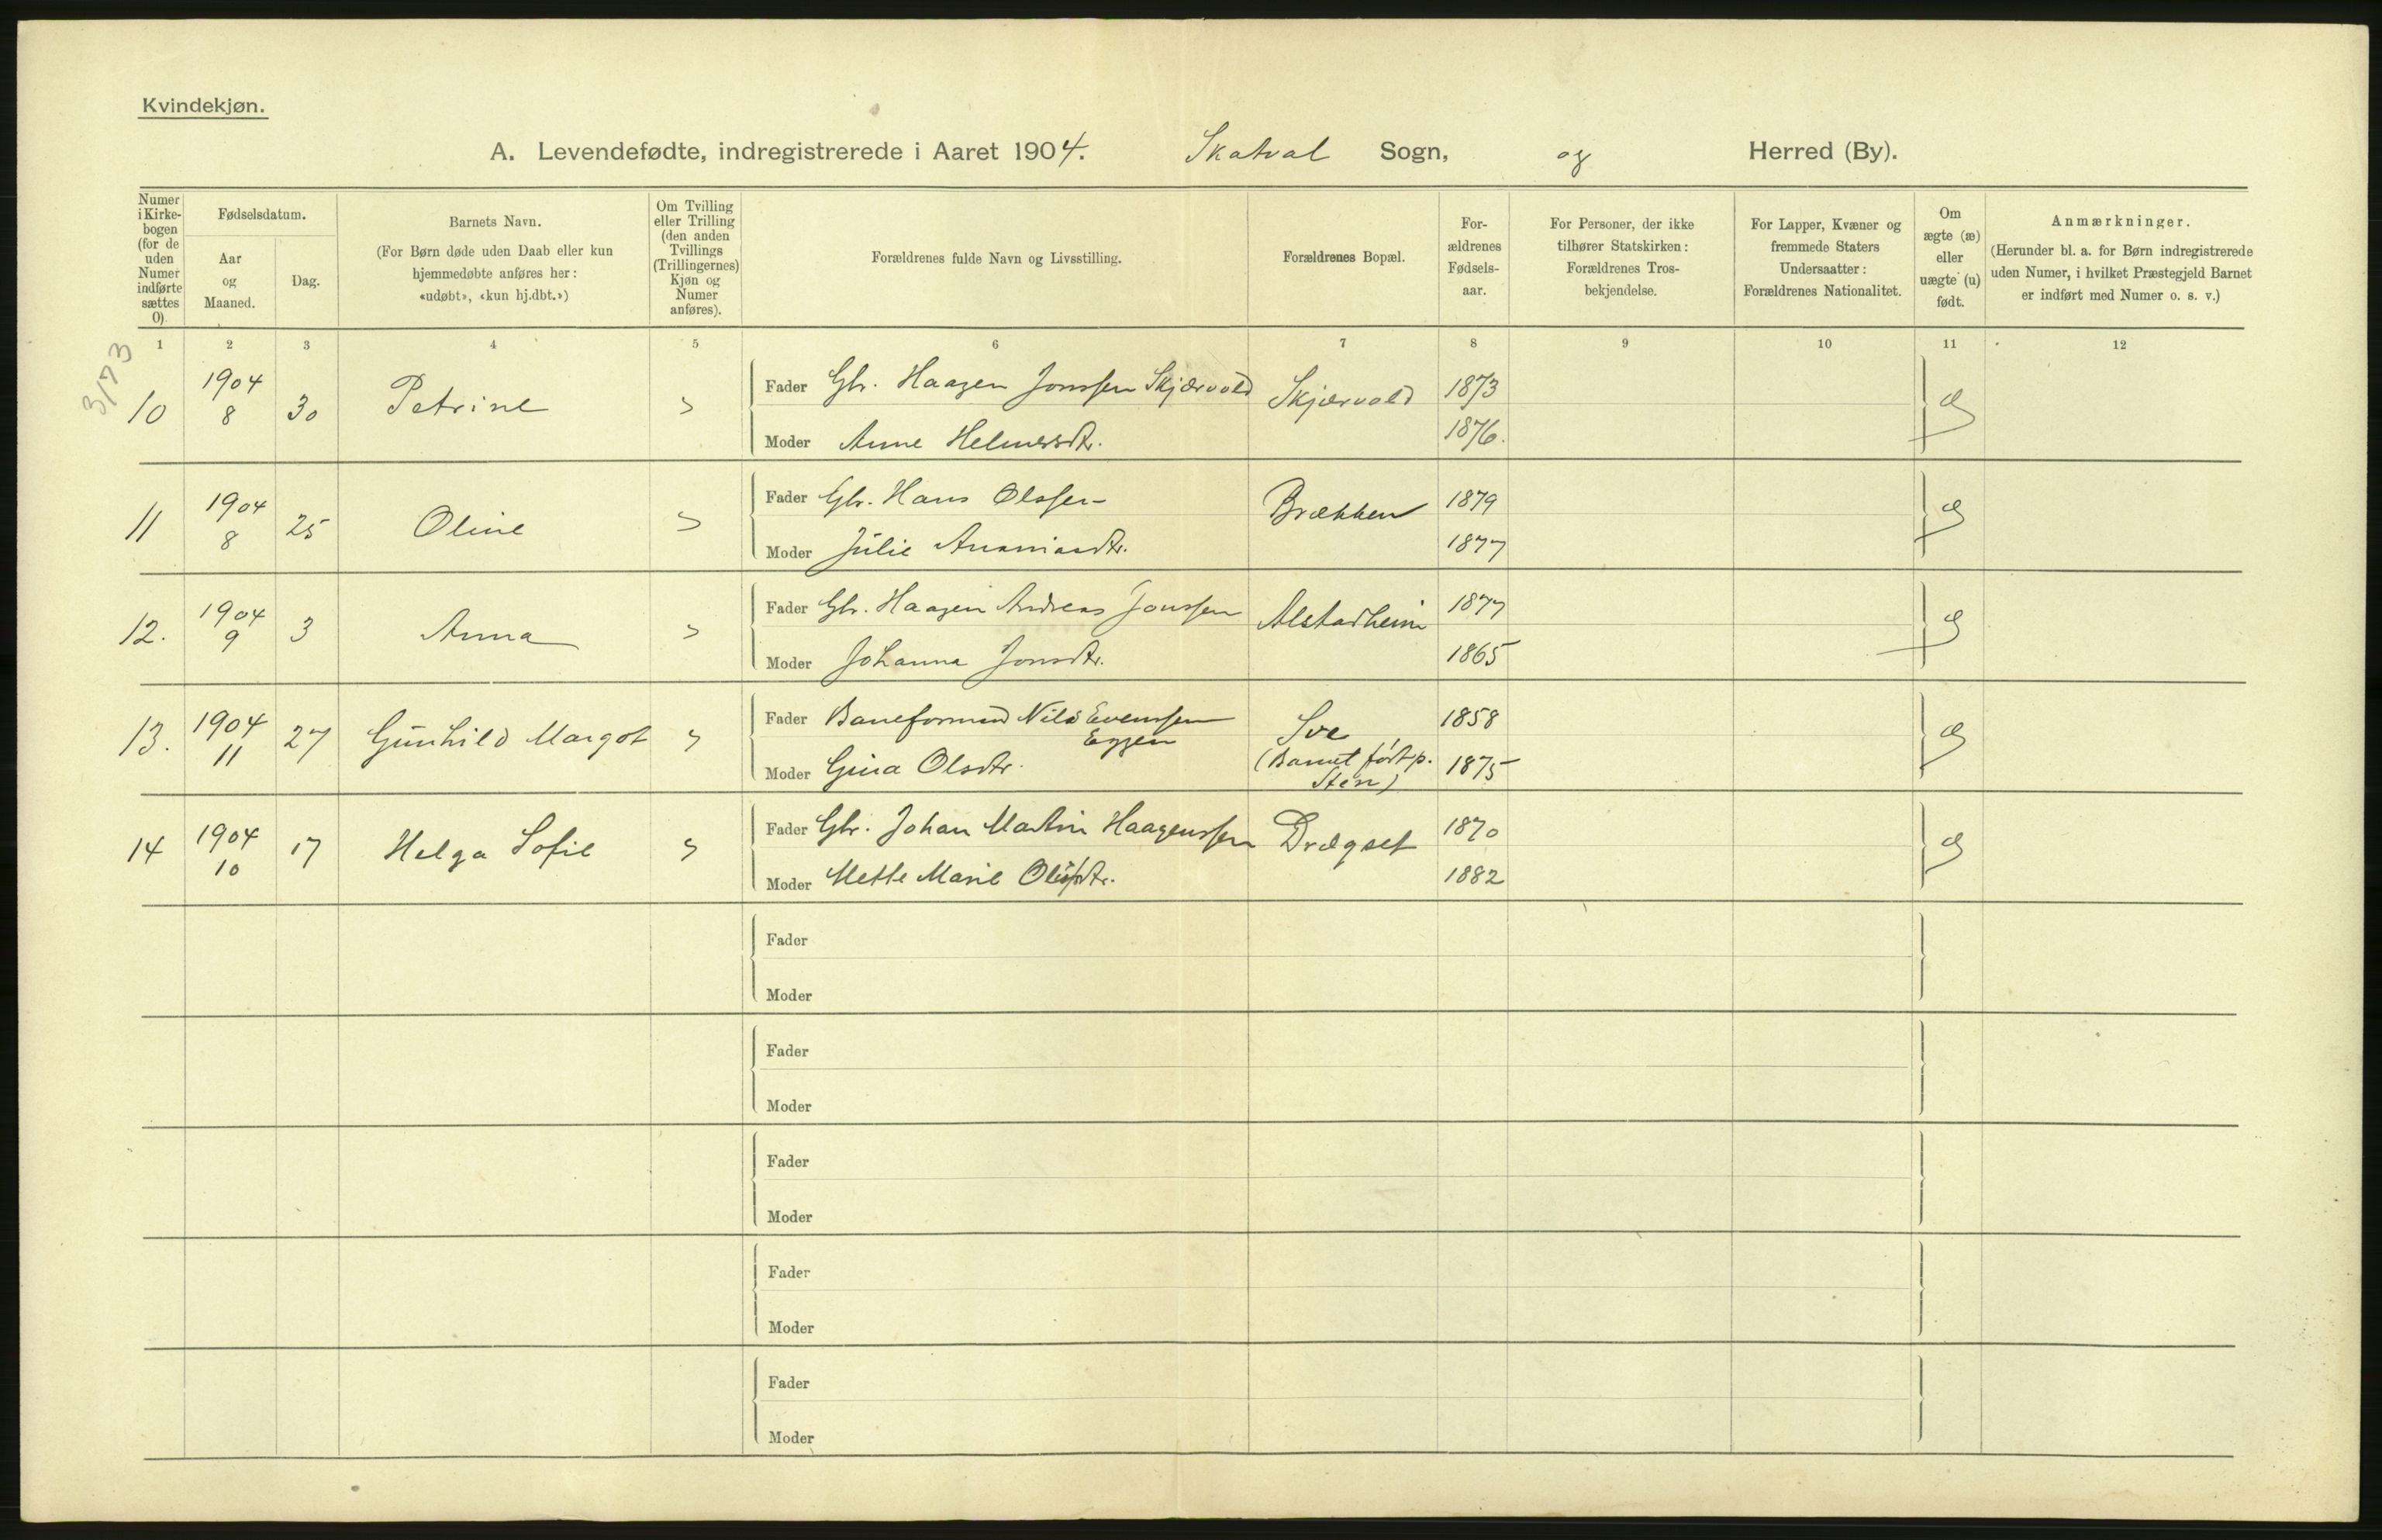 Kvindekjøn.
A. Levendefødte, indregistrerede i Aaret 1904. Skatval Sogn, og Herred (By).
Numer i Kirkebogen (for de uden Numer indførte sættes 0).
Fødselsdatum.
Aar og Maaned.
Dag.
Barnets Navn.
(For Børn døde uden Daab eller kun hjemmedøbte anføres her: «udøbt», «kun hj.dbt.»)
Om Tvilling eller Trilling (den anden Tvillings (Trillingernes) Kjøn og Numer anføres).
Forældrenes fulde Navn og Livsstilling.
Forældrenes Bopæl.
Forældrenes Fødselsaar.
For Personer, der ikke tilhører Statskirken: Forældrenes Trosbekjendelse.
For Lapper, Kvæner og fremmede Staters Undersaatter: Forældrenes Nationalitet.
Om ægte (æ) eller uægte (u) født.
Anmærkninger.
(Herunder bl. a. for Børn indregistrerede uden Numer, i hvilket Præstegjeld Barnet er indført med Numer o. s. v.)
1 2 3 4 5 6 7 8 9 10 11 12
3173
10 1904 8 30 Petrine Fader Gbr. Haagen Jonssen Skjærvold Skjærvold 1873 æ
Moder Anne Helmersdtr. 1876.
11 1904 8 25 Oline Fader Gbr. Hans Olssen Brækken 1879 æ
Moder Julie Ananiasdtr. 1877
12. 1904 9 3 Anna Fader Gbr. Haagen Andreas Jonssen Alstadheim 1877 æ
Moder Johanna Jonsdtr. 1865
13. 1904 11 27 Gunhild Margot Fader Baneformand Nils Evenssen Eggen Sve 1858 æ
Moder Gina Olsdtr. (Barnet født p. Sten) 1875
14 1904 10 17 Helga Sofie Fader Gbr. Johan Martin Haagenssen Drægset 1870 æ
Moder Mette Marie 1882
Fader
Moder
Fader
Moder
Fader
Moder
Fader
Moder
Fader
Moder